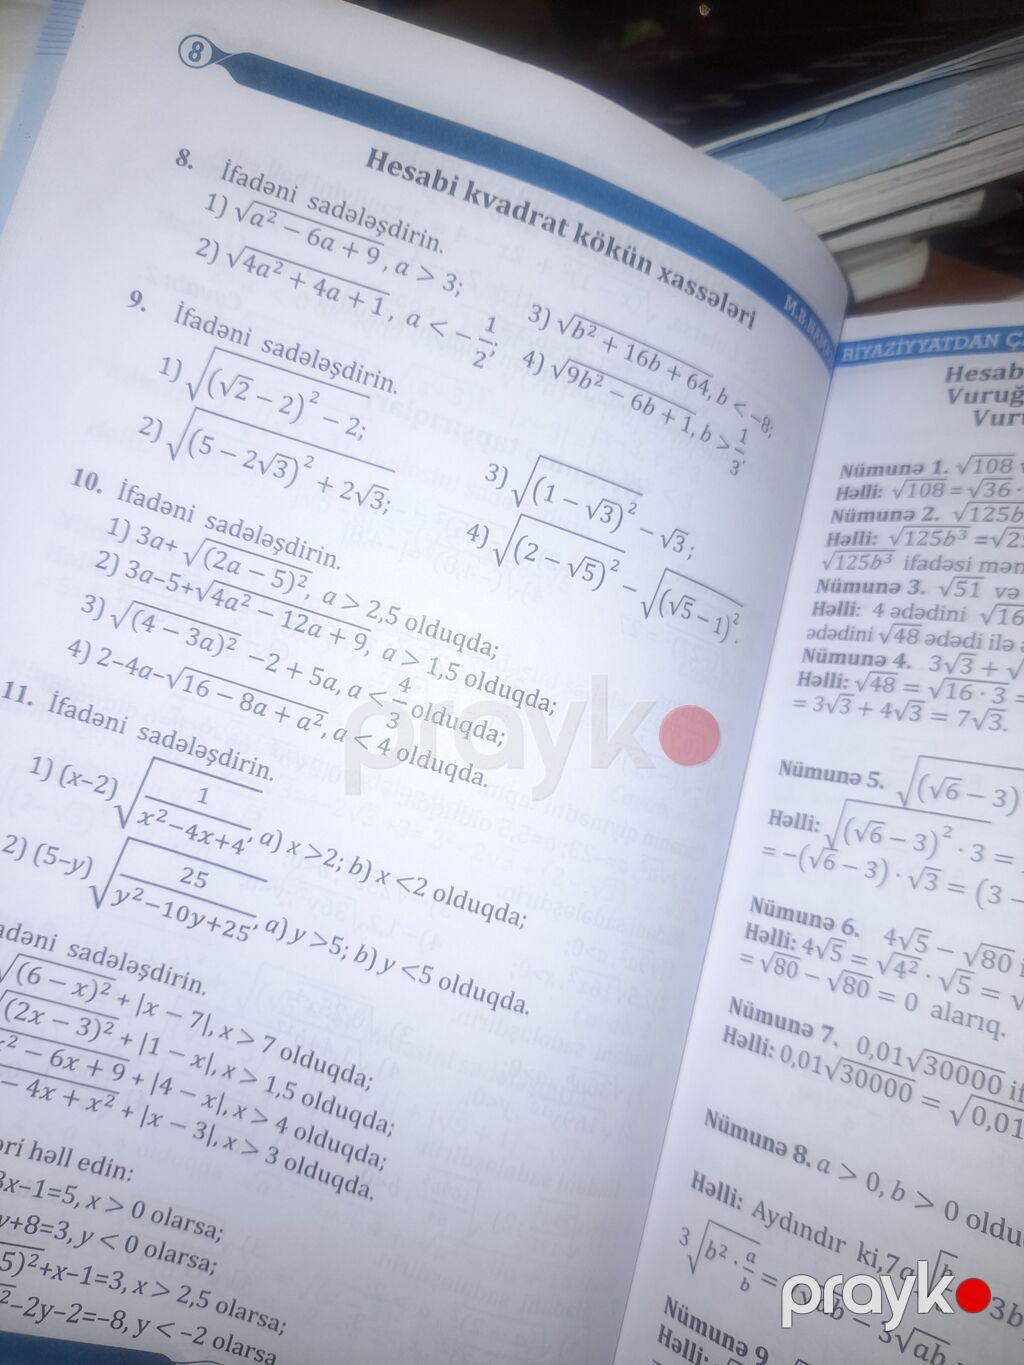 8
Hesabi kvadrat kökün xassələri
8. İfadəni sadələşdirin.
1) √(a² − 6a + 9), a > 3;
2) √(4a² + 4a + 1), a < −1/2;
3) √(b² + 16b + 64), b < −8;
4) √(9b² − 6b + 1), b > 1/3;
9. İfadəni sadələşdirin.
1) √((√2 − 2)²) − 2;
2) √((5 − 2√3)²) + 2√3;
3) √((1 − √3)²) − √3;
4) √((2 − √5)²) − √((√5−1)²).
10. İfadəni sadələşdirin.
1) 3a+ √((2a − 5)²), a > 2,5 olduqda;
2) 3a−5+√(4a² − 12a + 9), a > 1,5 olduqda;
3) √((4 − 3a)²) −2 + 5a, a < 4/3 olduqda;
4) 2−4a−√(16 − 8a + a²), a < 4 olduqda.
11. İfadəni sadələşdirin.
1) (x−2) √(1/(x²−4x+4)), a) x >2; b) x <2 olduqda;
2) (5−y) √(25/(y²−10y+25)), a) y >5; b) y <5 olduqda.
sadələşdirin.
√((6 − x)²) + |x − 7|, x > 7 olduqda;
√((2x − 3)²) + |1 − x|, x > 1,5 olduqda;
− 6x + 9 + |4 − x|, x > 4 olduqda;
− 4x + x² + |x − 3|, x > 3 olduqda.
həll edin:
x−1=5, x > 0 olarsa;
+8=3, y < 0 olarsa;
5)²+x−1=3, x > 2,5 olarsa;
−2y−2=−8, y < −2 olarsa
M.B.
RİYAZİYYATDAN
Nümunə 1. √108
Həlli: √108 = √36 ·
Nümunə 2. √125b
Həlli: √125b³ =
√125b³ ifadəsi
Nümunə 3. √51 və
Həlli: 4 ədədini √16
ədədini √48 ədədi ilə
Nümunə 4. 3√3 +
Həlli: √48 = √(16 · 3) =
= 3√3 + 4√3 = 7√3.
Nümunə 5. √((√6 − 3)
Həlli: √((√6 − 3)² · 3 =
= −(√6 − 3) · √3 = (3 −
Nümunə 6. 4√5 − √80
Həlli: 4√5 = √4² · √5 =
= √80 − √80 = 0 alarıq.
Nümunə 7. 0,01√30000
Həlli: 0,01√30000 = √0,01
Nümunə 8. a > 0, b > 0
Həlli: Aydındır ki,
3√(b² · a/b) =
Nümunə 9
Həlli:
prayk
prayk